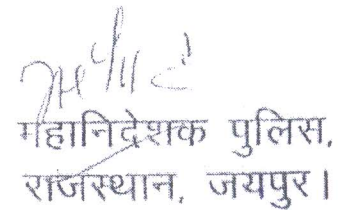 महानिदेशक पुलिस,
राजस्थान, जयपुर।